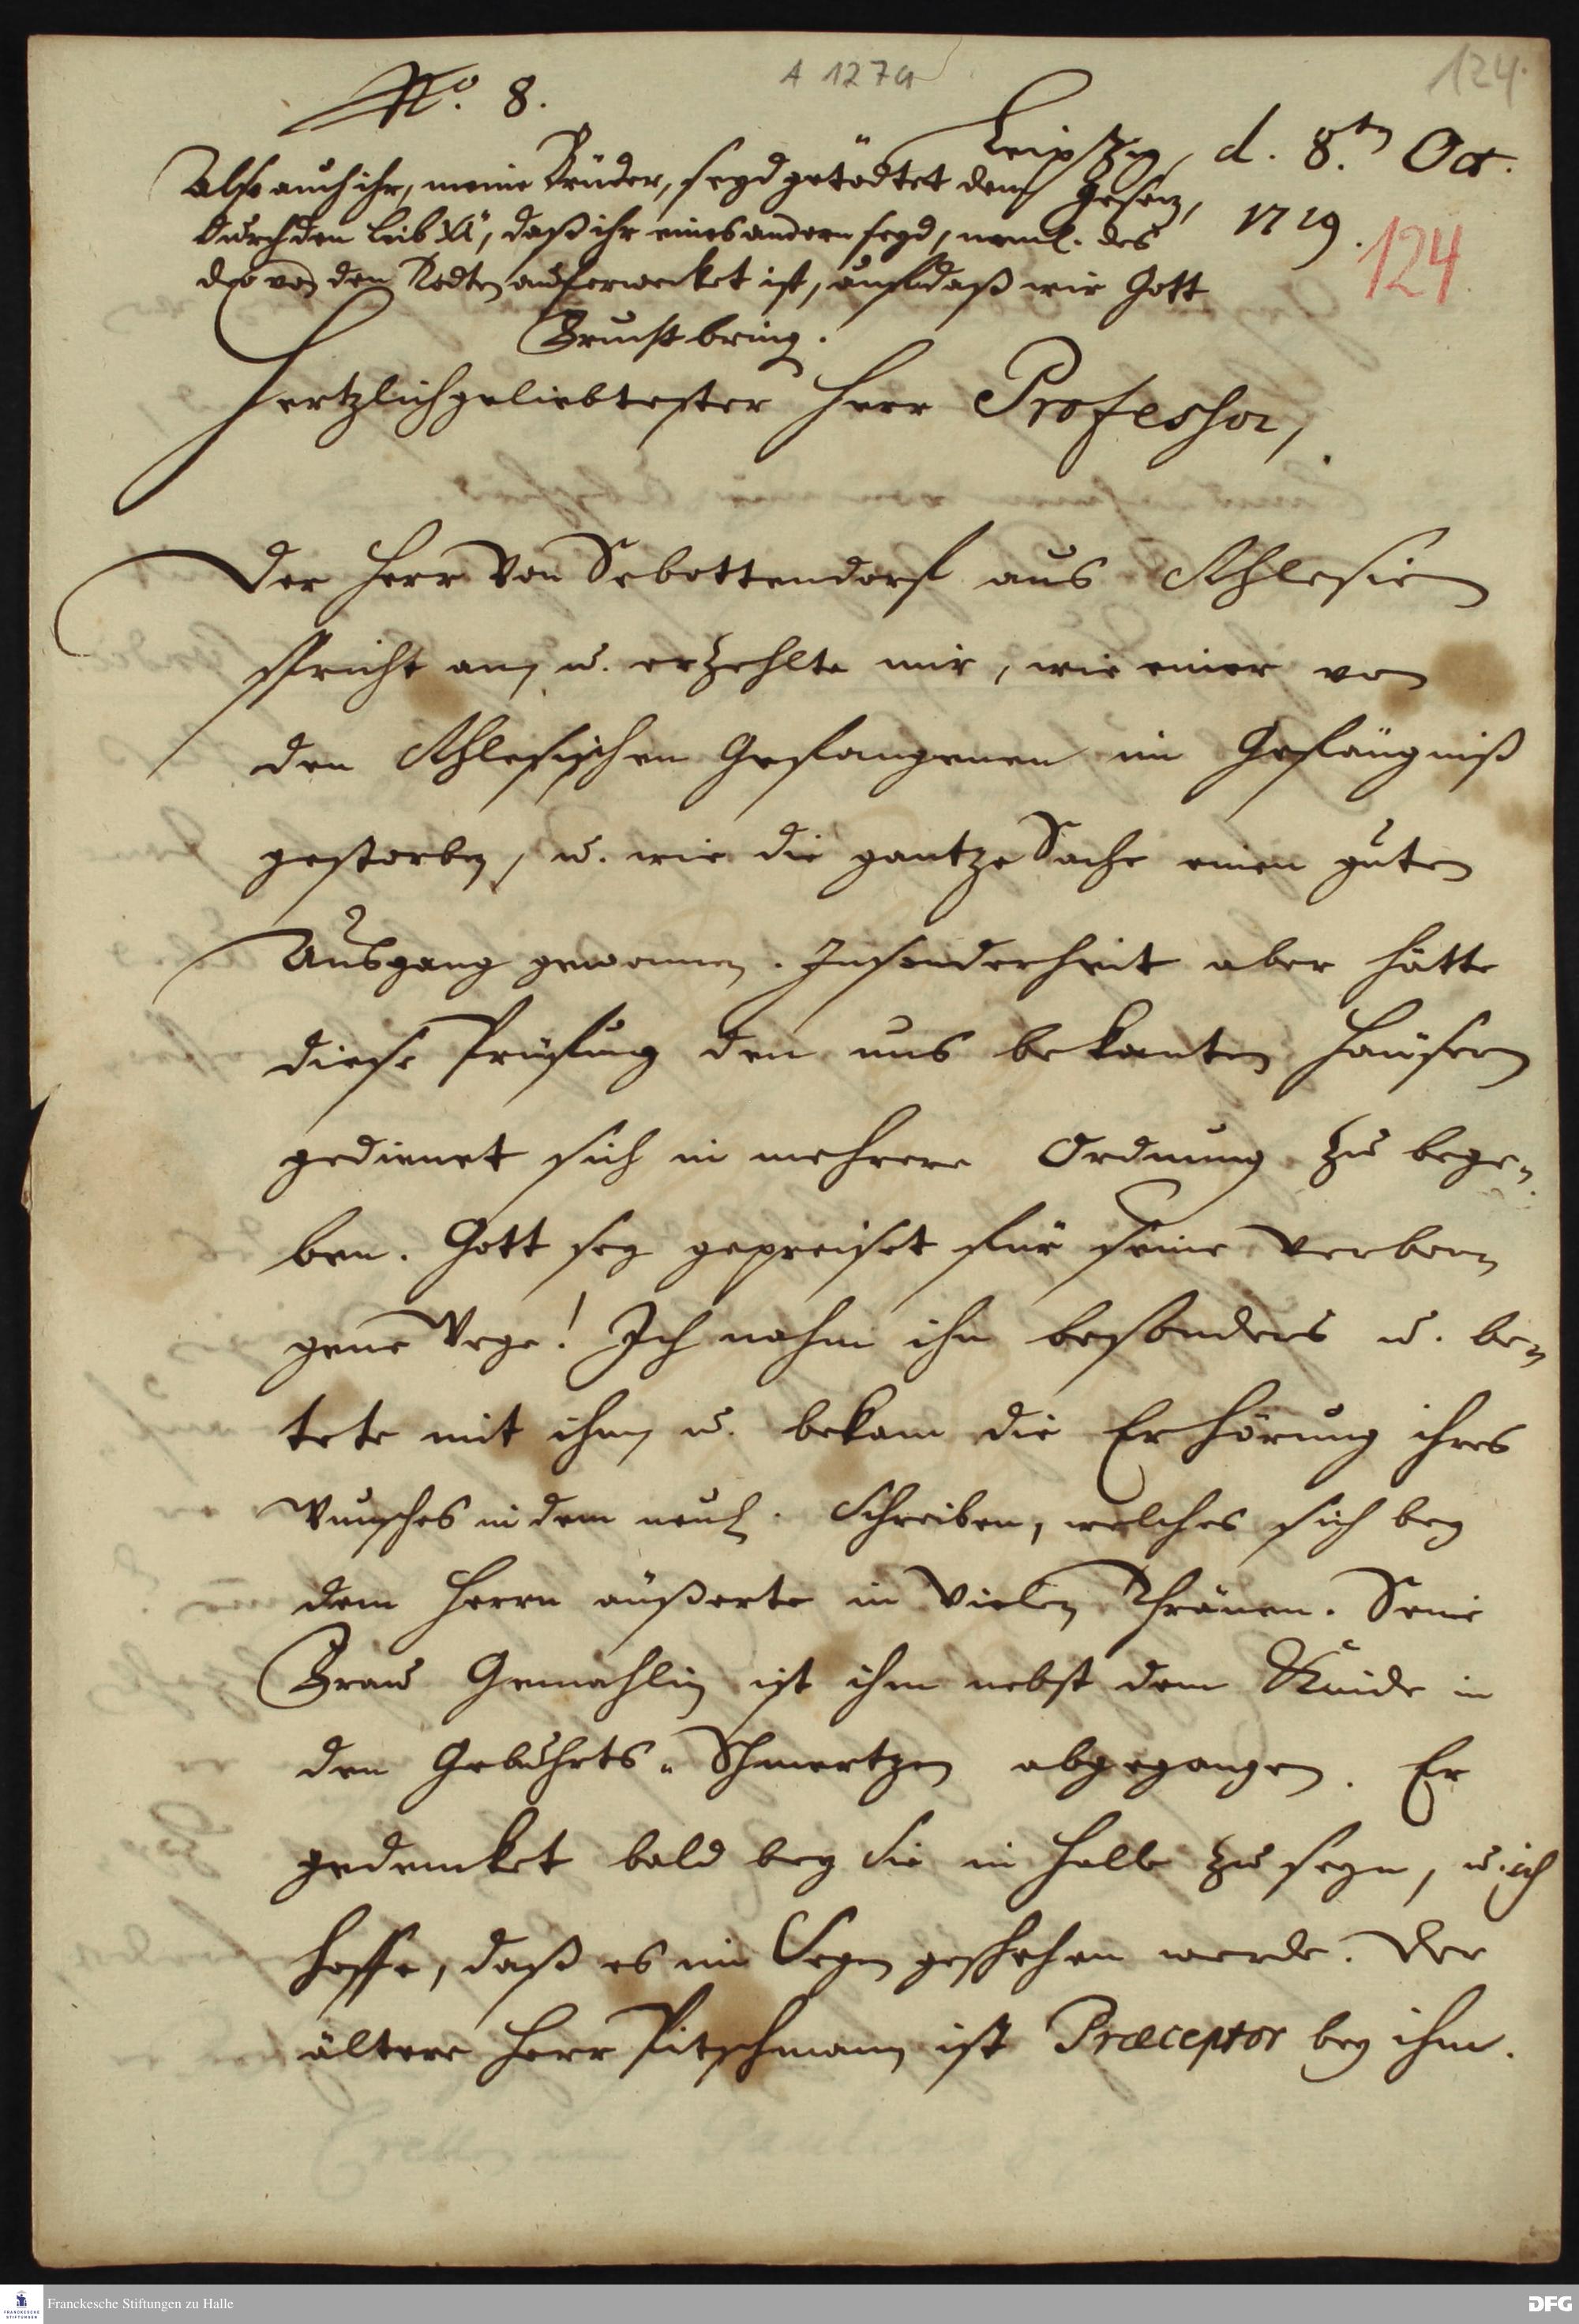 A 127a
124.
No. 8.
Leipzig, d. 8.ten Oct.
1719.
124
Also auch ihr, meine Brüder, seyd getödtet dem Gesetz,
durch den leib Xi, daß ihr eines andern seyd, neml. des
der von den Todten auferwecket ist, auf daß wir Gott
Frucht bring.
Hertzlichgeliebtester Herr Professor,
Der Herr von Sebottendorf aus Schlesien
spricht an, u. erzehlte mir, wie einer von
den Schlesischen Gefangenen im Gefängniß
gestorben, u. wie die gantze Sache einen guten
Ausgang gewonnen. Insonderheit aber hätte
diese Prüfung den uns bekanten Häusern
gedienet sich in mehrere Ordnung zu bege-
ben. Gott sey gepreiset für seine verbor-
gene Wege! Ich nahm ihn besonders u. be-
tete mit ihm, u. bekam die Erhörung ihres
Wunsches in dem neul. Schreiben, welches sich bey
dem Herrn äußerte in vielen Thränen. Seine
Frau Gemahlin ist ihm nebst dem Kinde in
den Gebuhrts-Schmertzen abgegangen. Er
gedencket bald bey Sie in Halle zu seyn, u. ich
hoffe, daß es im Segen geschehen werde. Der
ältere Herr Pitschmann ist Præceptor bey ihm.
FRANCKESCHE STIFTUNGEN
Franckesche Stiftungen zu Halle
DFG